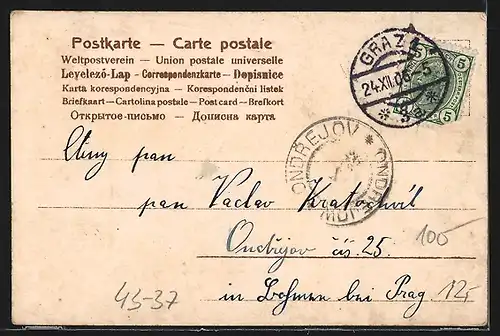 Postkarte — Carte postale
Weltpostverein — Union postale universelle
Levelező-Lap - Correspondenzkarte - Dopisnice
Karta korespondencyjna - Korespondenční listek
Briefkaart - Cartolina postale - Post card - Brefkort
Открытое-письмо — Дописна карта
GRAZ 1
24.XII.06
5
5
ONDŘEJOV * ONDŘ
pan
pan Vaclav Kratochvíl
Ondřejov čís. 25.
100
in Bohmen bei Prag.
12,-
45-37